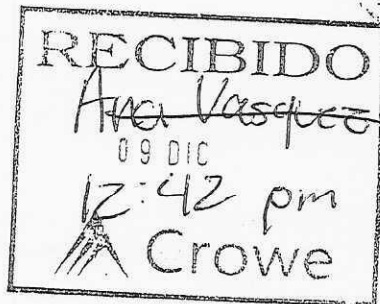 RECIBIDO
Ana Vasquez
09 DIC
12:42 pm
Crowe